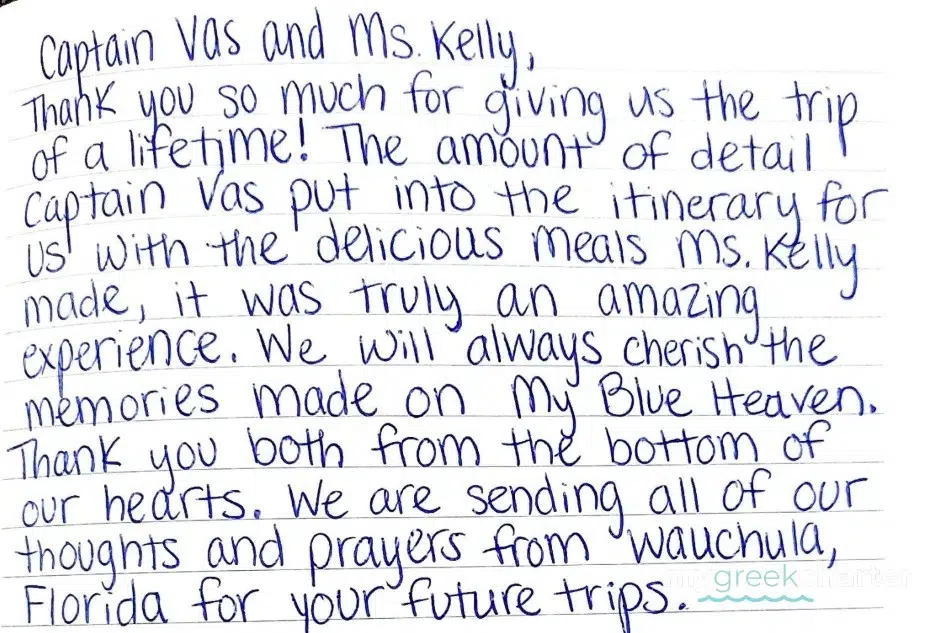 Captain Vas and Ms. Kelly,
Thank you so much for giving us the trip
of a lifetime! The amount of detail
Captain Vas put into the itinerary for
us with the delicious meals Ms. Kelly
made, it was truly an amazing
experience. We will always cherish the
memories made on My Blue Heaven.
Thank you both from the bottom of
our hearts. We are sending all of our
thoughts and prayers from Wauchula,
Florida for your future trips.
mygreekcharter